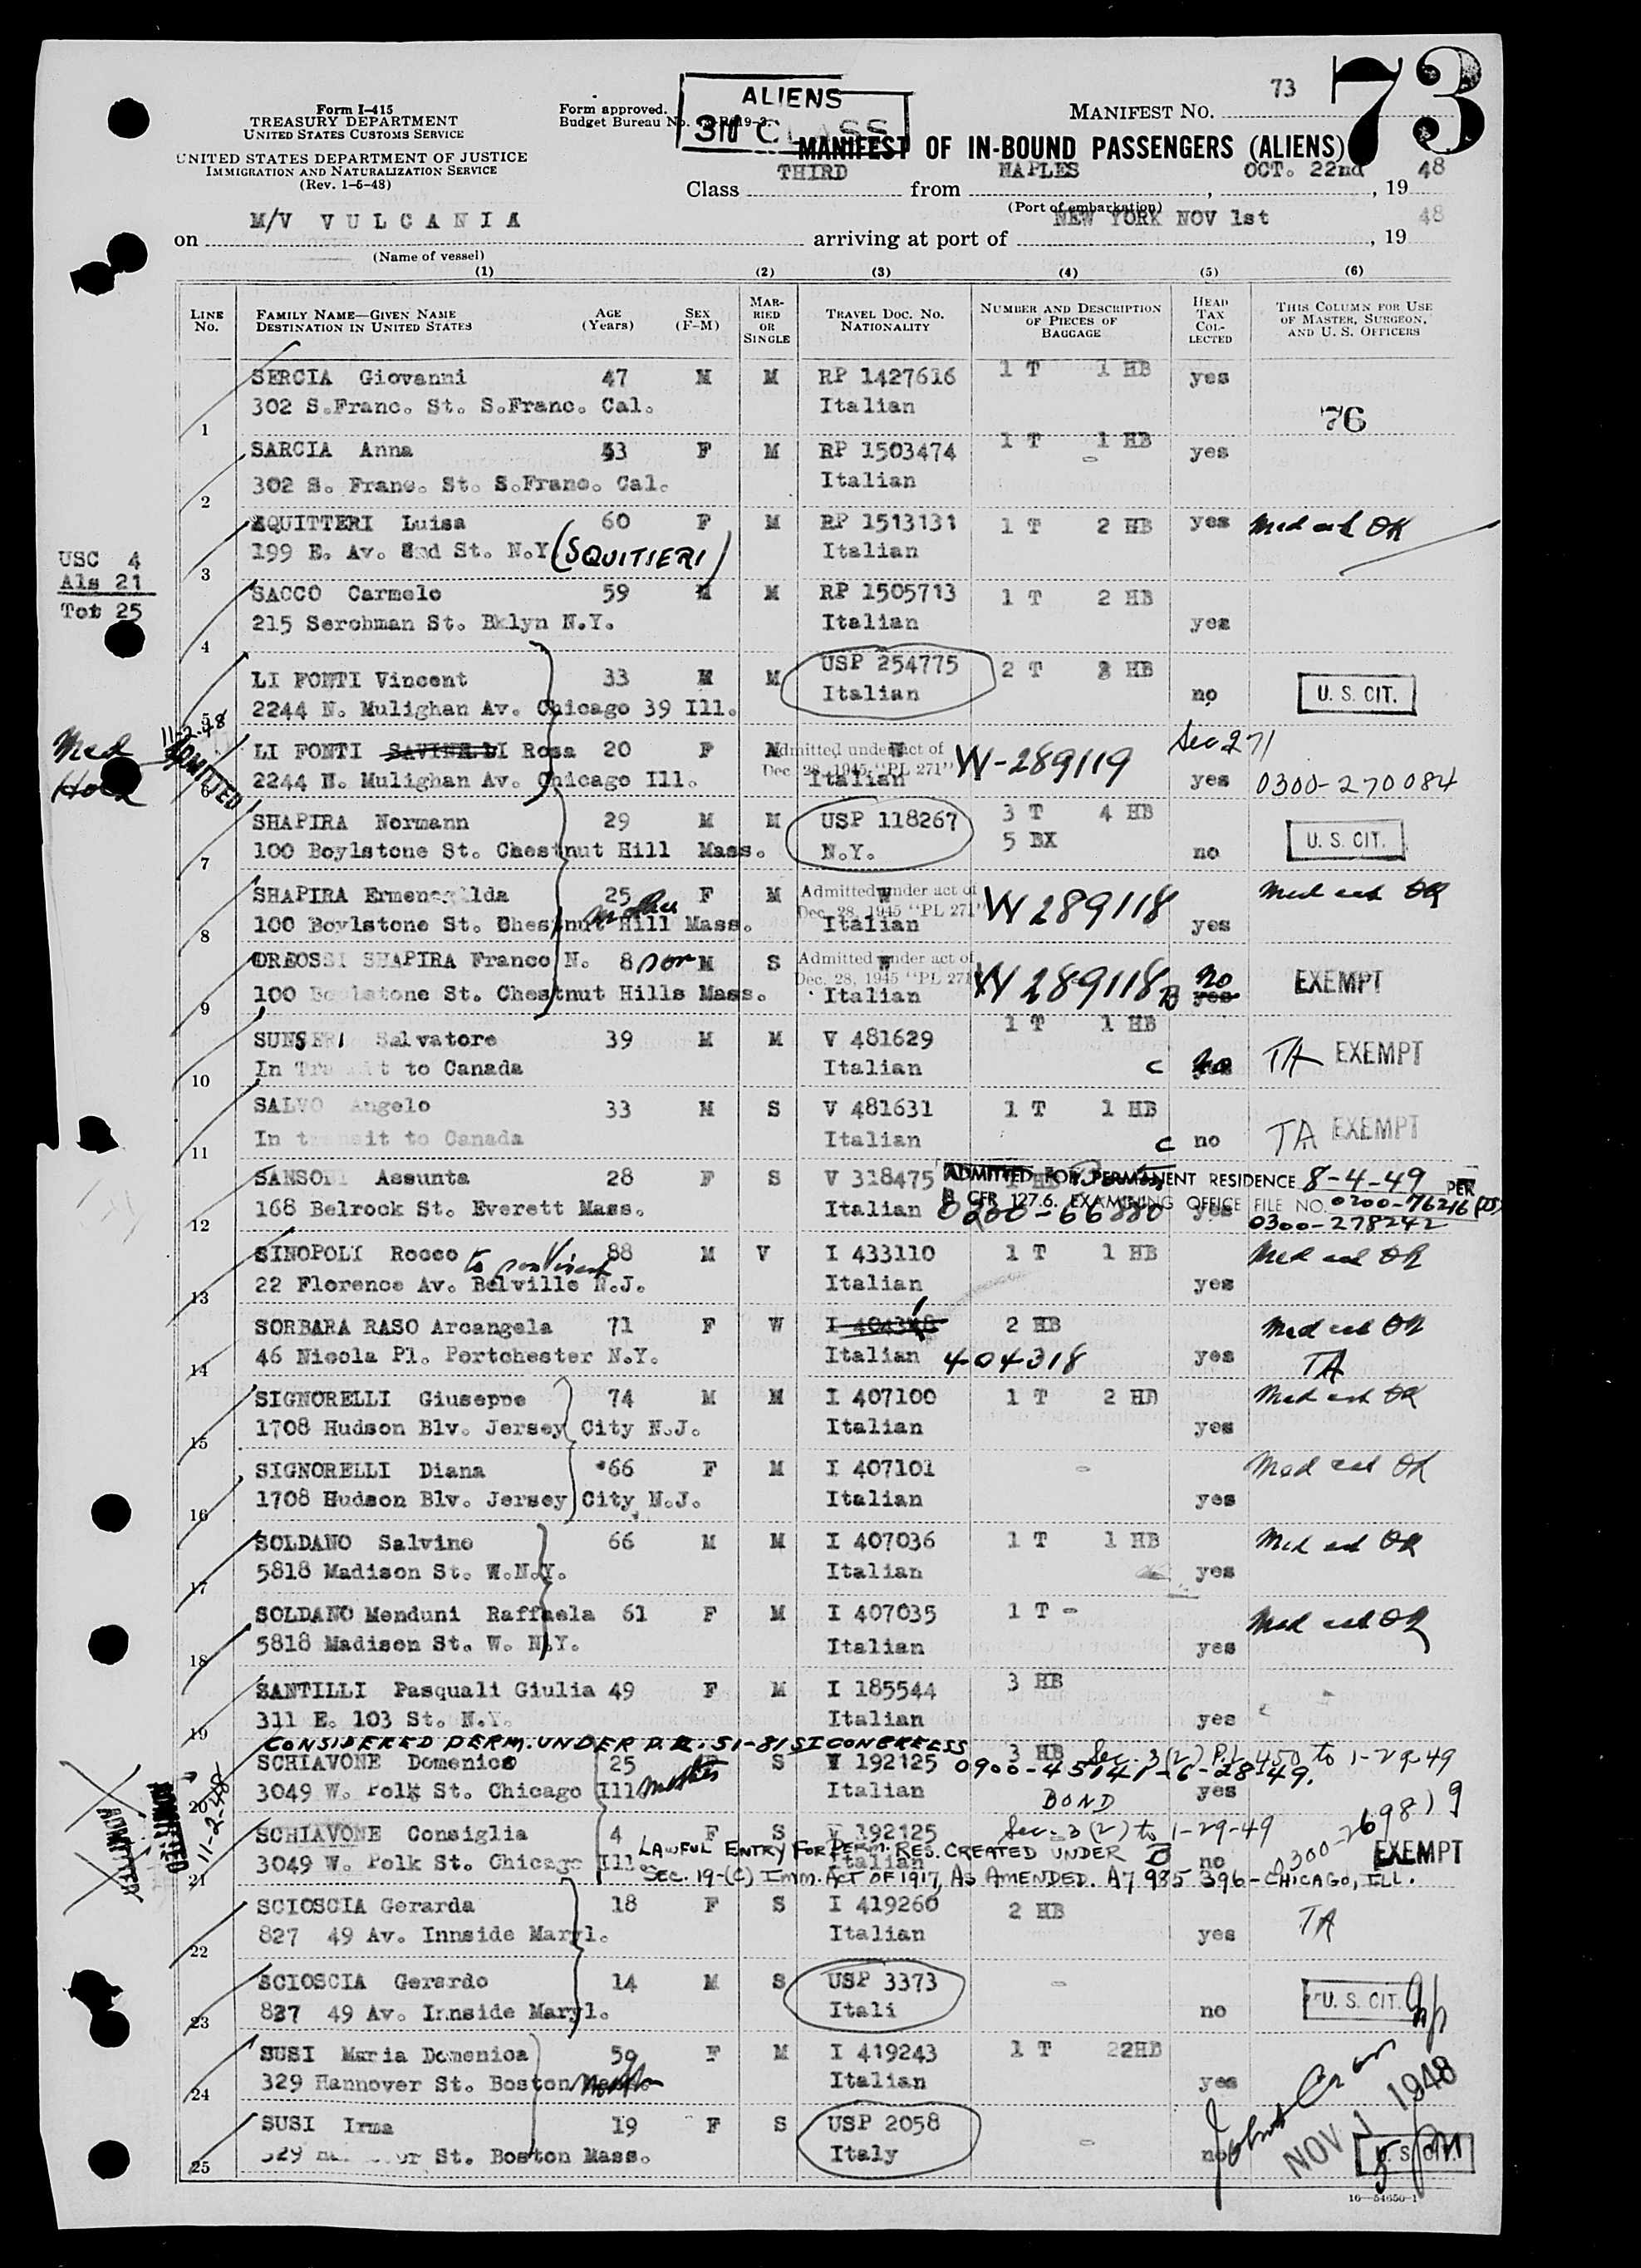 73
ALIENS
3rd CLASS
73
Form I-415
TREASURY DEPARTMENT
UNITED STATES CUSTOMS SERVICE
Form approved.
Budget Bureau No.
MANIFEST NO.
UNITED STATES DEPARTMENT OF JUSTICE
IMMIGRATION AND NATURALIZATION SERVICE
(Rev. 1-6-48)
MANIFEST OF IN-BOUND PASSENGERS (ALIENS)
Class THIRD from NAPLES, OCT. 22nd, 19 48
(Port of embarkation)
on M/V VULCANIA arriving at port of NEW YORK NOV 1st, 19 48
(Name of vessel)
(1) (2) (3) (4) (5) (6)
LINE No. FAMILY NAME—GIVEN NAME DESTINATION IN UNITED STATES AGE (Years) SEX (F-M) MAR-RIED OR SINGLE TRAVEL DOC. NO. NATIONALITY NUMBER AND DESCRIPTION OF PIECES OF BAGGAGE HEAD TAX COL-LECTED THIS COLUMN FOR USE OF MASTER, SURGEON, AND U. S. OFFICERS
SERCIA Giovanni 47 M M RP 1427616 1 T 1 HB yes
302 S.Franc. St. S.Franc. Cal. Italian
1 76
SARCIA Anna 53 F M RP 1503474 1 T 1 HB yes
302 S. Franc. St. S.Franc. Cal. Italian
2
SQUITTERI Luisa 60 F M RP 1513131 1 T 2 HB yes Med cert OK
199 E. Av. 2nd St. N.Y. (SQUITIERI) Italian
3
USC 4
Als 21
Tot 25
SACCO Carmelo 59 M M RP 1505713 1 T 2 HB
215 Serchman St. Bklyn N.Y. Italian yes
4
LI FONTI Vincent 33 M M USP 254775 2 T 2 HB
2244 N. Mulighan Av. Chicago 39 Ill. Italian no U. S. CIT.
5
Med Hold 11-2-48 ADMITTED
LI FONTI SAVINELLI Rosa 20 F Admitted under act of Dec. 28, 1945 "PL 271" W-289119 Sec 271
2244 N. Mulighan Av. Chicago Ill. Italian yes 0300-270084
6
SHAPIRA Normann 29 M M USP 118267 3 T 4 HB
100 Boylstone St. Chestnut Hill Mass. N.Y. 5 BX no U. S. CIT.
7
SHAPIRA Ermenegilda 25 F M Admitted under act of Dec. 28, 1945 "PL 271" W 289118 Med cert OK
100 Boylstone St. Chestnut Hill Mass. mother Italian yes
8
OREOSSI SHAPIRA Franco N. 8 son M S Admitted under act of Dec. 28, 1945 "PL 271" W 289118 B no EXEMPT
100 Boylstone St. Chestnut Hills Mass. Italian yes
9
SUNSERI Salvatore 39 M M V 481629 1 T 1 HB
In Transit to Canada Italian C no TA EXEMPT
10
SALVO Angelo 33 M S V 481631 1 T 1 HB
In transit to Canada Italian C no TA EXEMPT
11
SANSONI Assunta 28 F S V 318475 ADMITTED FOR PERMANENT RESIDENCE 8-4-49 PER
8 CFR 127.6. EXAMINING OFFICE FILE NO. 0200-76216
168 Belrock St. Everett Mass. Italian 0200-66880 yes 0300-278242
12
SINOPOLI Rocco 88 M V I 433110 1 T 1 HB Med cert OK
22 Florence Av. Belville N.J. Italian yes
13
SORBARA RASO Arcangela 71 F W I 404318 2 HB Med cert OK
46 Nicola Pl. Portchester N.Y. Italian 404318 yes TA
14
SIGNORELLI Giuseppe 74 M M I 407100 1 T 2 HB Med cert OK
1708 Hudson Blv. Jersey City N.J. Italian yes
15
SIGNORELLI Diana 66 F M I 407101 - Med cert OK
1708 Hudson Blv. Jersey City N.J. Italian yes
16
SOLDANO Salvino 66 M M I 407036 1 T 1 HB Med cert OK
5818 Madison St. W.N.Y. Italian yes
17
SOLDANO Menduni Raffaela 61 F M I 407035 1 T - Med cert OK
5818 Madison St. W. N.Y. Italian yes
18
SANTILLI Pasquali Giulia 49 F M I 185544 3 HB
311 E. 103 St. N.Y. Italian yes
19
CONSIDERED PERM. UNDER P.L. 51-81ST CONGRESS
SCHIAVONE Domenica 25 S V 192125 3 HB Sec. 3(2) P.L. 450 to 1-29-49
0900-45141-6-28-49.
3049 W. Polk St. Chicago Ill. mother Italian BOND yes
20
ADMITTED 11-2-48
ADMITTED
SCHIAVONE Consiglia 4 F S V 192125 Sec. 3(2) to 1-29-49 0300-269819
LAWFUL ENTRY FOR PERM. RES. CREATED UNDER
3049 W. Polk St. Chicago Ill. Italian no EXEMPT
SEC. 19-(C) IMM. ACT OF 1917, AS AMENDED. A7 985 396-CHICAGO, ILL.
21
SCIOSCIA Gerarda 18 F S I 419260 2 HB TA
827 49 Av. Innside Maryl. Italian yes
22
SCIOSCIA Gerardo 14 M S USP 3373 - U. S. CIT.
827 49 Av. Innside Maryl. Itali no
23
SUSI Maria Domenica 59 F M I 419243 1 T 22HB
329 Hannover St. Boston Italian yes
24
SUSI Irma 19 F S USP 2058 -
329 St. Boston Mass. Italy no U. S. CIT.
25
NOV 1 1948
16—54650-1